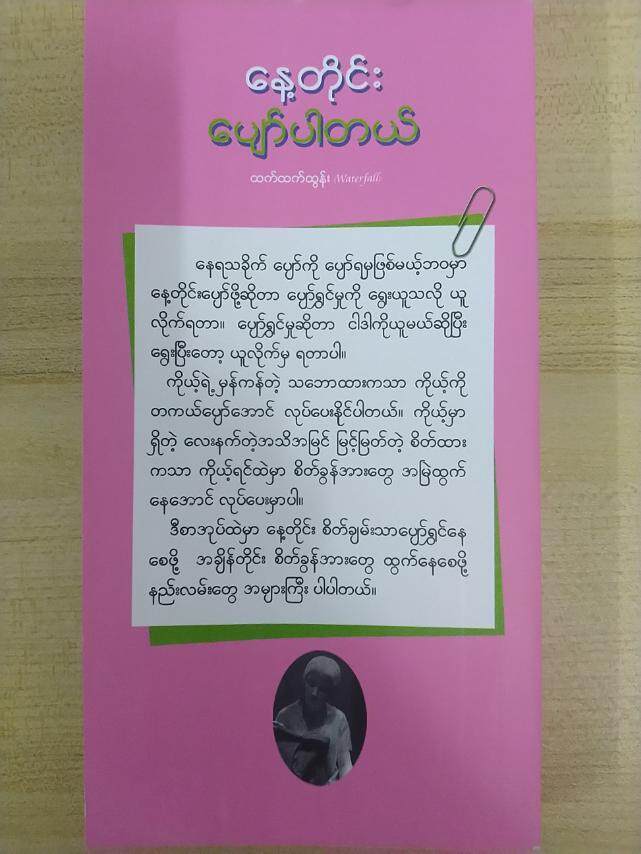 နေ့တိုင်း
ပျော်ပါတယ်
ထက်ထက်ထွန်း (Waterfall)
နေရသခိုက် ပျော်ကို ပျော်ရမှဖြစ်မယ့်ဘဝမှာ
နေ့တိုင်းပျော်ဖို့ဆိုတာ ပျော်ရွှင်မှုကို ရွေးယူသလို ယူ
လိုက်ရတာ။ ပျော်ရွှင်မှုဆိုတာ ငါဒါကိုယူမယ်ဆိုပြီး
ရွေးပြီးတော့ ယူလိုက်မှ ရတာပါ။
ကိုယ့်ရဲ့ မှန်ကန်တဲ့ သဘောထားကသာ ကိုယ့်ကို
တကယ်ပျော်အောင် လုပ်ပေးနိုင်ပါတယ်။ ကိုယ့်မှာ
ရှိတဲ့ လေးနက်တဲ့အသိအမြင် မြင့်မြတ်တဲ့ စိတ်ထား
ကသာ ကိုယ့်ရင်ထဲမှာ စိတ်ခွန်အားတွေ အမြဲထွက်
နေအောင် လုပ်ပေးမှာပါ။
ဒီစာအုပ်ထဲမှာ နေ့တိုင်း စိတ်ချမ်းသာပျော်ရွှင်နေ
စေဖို့ အချိန်တိုင်း စိတ်ခွန်အားတွေ ထွက်နေစေဖို့
နည်းလမ်းတွေ အများကြီး ပါပါတယ်။